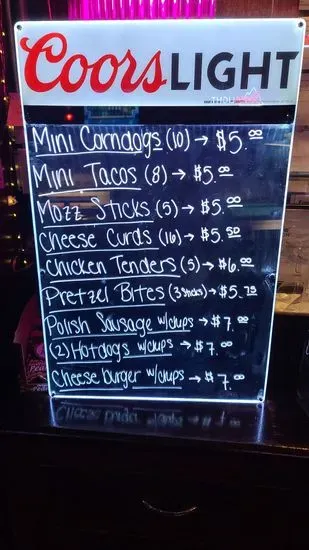 Coors LIGHT
Mini Corndogs (10) → $5.00
Mini Tacos (8) → $5.00
Mozz Sticks (5) → $5.00
Cheese Curds (16) → $5.50
Chicken Tenders (5) → $6.00
Pretzel Bites (3 sticks) → $5.75
Polish Sausage w/chips → $7.00
(2) Hotdogs w/chips → $7.00
Cheese burger w/chips → $7.00